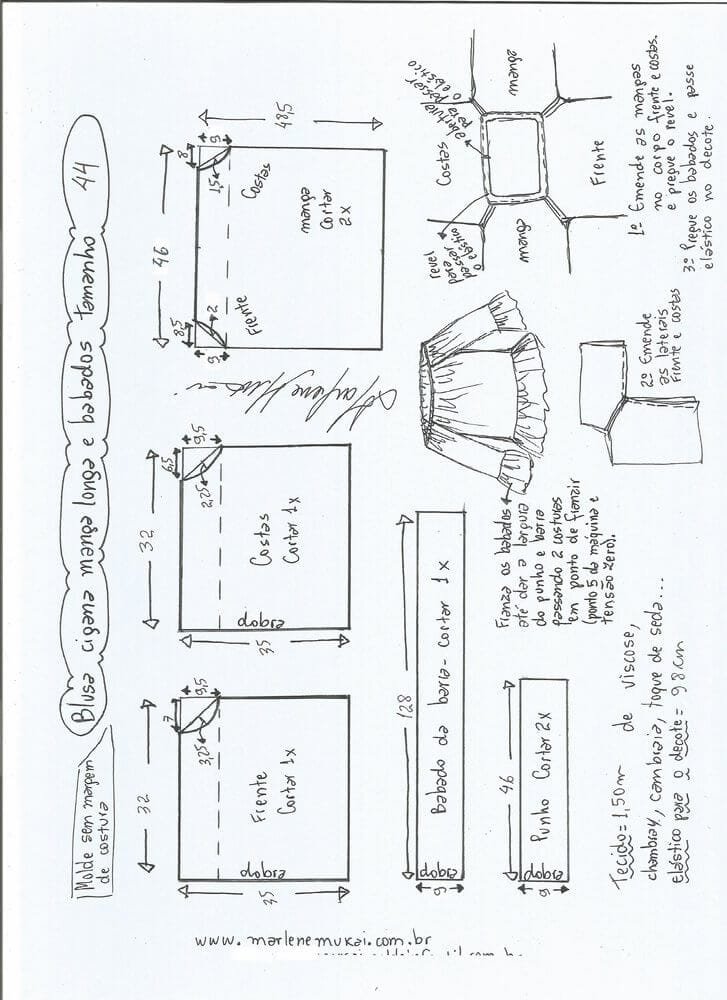 Blusa cigana manga longa e babados tamanho 44
Molde sem margem
de costura
32
7
9,5
3,25
Frente
Cortar 1x
dobra
35
32
6,5
9,5
2,25
Costas
Cortar 1x
dobra
35
46
8,5
9
2
Frente
8
9
1,5
Costas
manga
cortar
2x
48,5
128
Babado da barra - cortar 1x
dobra
9
46
Punho Cortar 2x
dobra
9
Franza os babados
até dar a largura
do punho e barra
passando 2 costuras
em ponto de franzir
(ponto 5 da máquina e
tensão zero).
Tecido = 1,50m de viscose,
chambray, cambraia, toque de seda...
elástico para o decote = 98cm
revel
para
passar
o elástico
abertura
para
passar
o elástico
Costas
manga
manga
Frente
1º Emende as mangas
no corpo frente e costas.
e pregue o revel.
3º Pregue os babados e passe
elástico no decote.
2º Emende
as laterais
frente e costas
www.marlenemukai.com.br